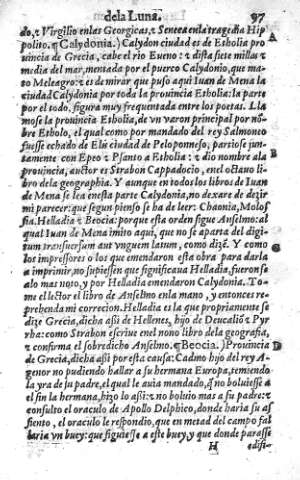 dela Luna. 97
do, τ Virgilio enlas Georgicas, τ Seneca enla tragedia Hip
polito. ¶ Calydonia.) Calydon ciudad es de Etholia pro A
uincia de Grecia, cabe el rio Eueno: τ dista siete millas τ
media del mar, mentada por el puerco Calydonio, que ma-
to Meleagro: τ es de mirar que puso aqui Iuan de Mena la
ciudad Calydonia por toda la prouincia Etholia: la parte
por el todo, figura muy frequentada entre los poetas. Lla
mose la prouincia Etholia, de vn varon principal por nõ-
bre Etholo, el qual como por mandado del rey Salmoneo
fuesse echado de Elù ciudad de Peloponneso, partiose jun-
tamente con Epeo τ Psanto a Etholia: τ dio nombre ala B
prouincia, auctor es Strabon Cappadocio, enel octauo li-
bro dela geographia. Y aunque en todos los libros de Iuan
de Mena se lea enesta parte Calydonia, no dexare de dezir
mi parecer: que segun pienso se ha de leer: Chaonia, Molos
sia. Helladia τ Beocia: porque esta orden sigue Anselmo: al
qual Iuan de Mena imito aqui, que no se aparta del digi-
tum transuersum aut vnguem latum, como dizẽ. Y como
los impressores o los que emendaron esta obra para darla
a imprimir, no supiessen que significaua Helladia, fueron se
alo mas noto, y por Helladia emendaron Calydonia. To-
me el lector el libro de Anselmo enla mano, y entonces re-
prehenda mi correcion. Helladia es la que propriamente se
dize Grecia, dicha assi de Hellenes, hijo de Deucaliõ τ Pyr
rha: como Strabon escriue enel nono libro dela geografia,
τ confirma el sobredicho Anselmo. ¶ Beocia.) Prouincia
de Grecia, dicha assi por esta causa: Cadmo hijo del rey A-
genor no pudiendo hallar a su hermana Europa, temiendo
la yra de su padre, el qual le auia mandado, q̃ no boluiesse a
el sin la hermana, hizo lo assi: τ no boluio mas a su padre: τ
consulto el oraculo de Apollo Delphico, donde haria su as
siento, el oraculo le respondio, que en metad del campo fal
laria vn buey: que siguiesse a este buey, y que donde parasse
H edifi-